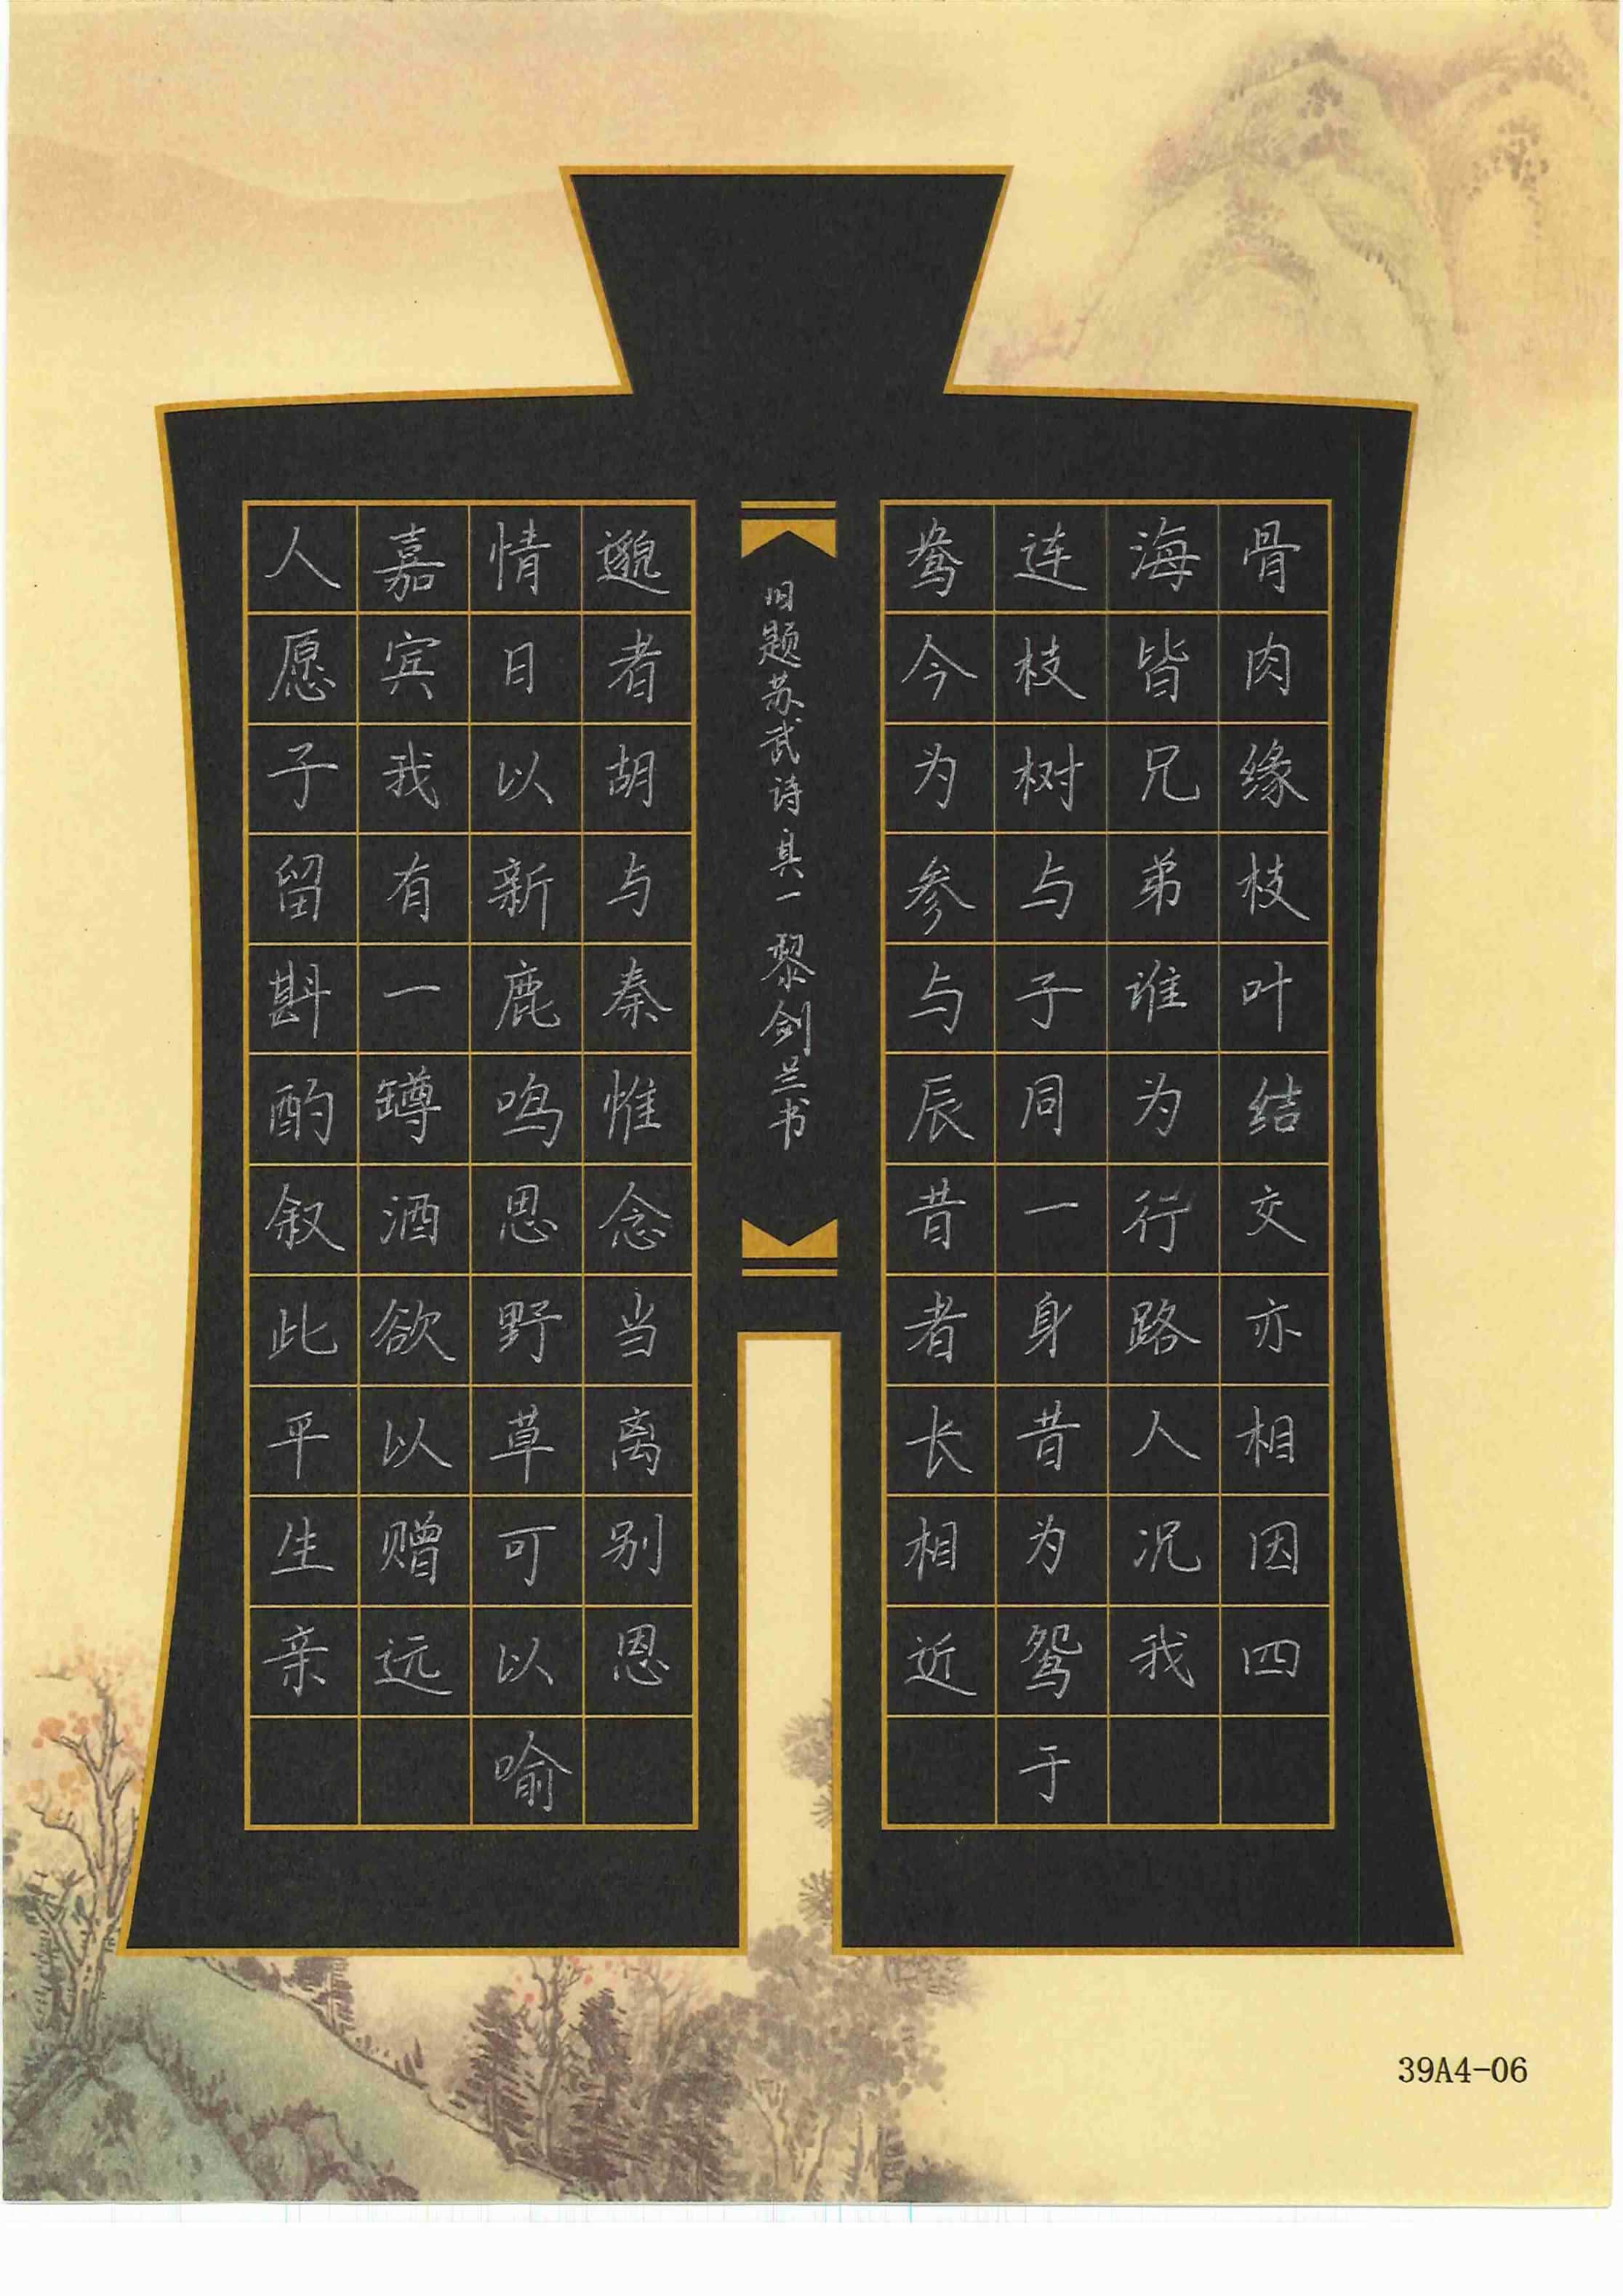 骨肉缘枝叶结交亦相因四
海皆兄弟谁为行路人况我
连枝树与子同一身昔为鸳于
鸯今为参与辰昔者长相近
旧题苏武诗其一 黎剑兰书
邈者胡与秦惟念当离别恩
情日以新鹿鸣思野草可以喻
嘉宾我有一罇酒欲以赠远
人愿子留斟酌叙此平生亲
39A4-06